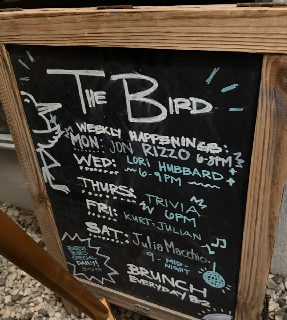 THE BIRD
WEEKLY HAPPENINGS:
MON: JON RIZZO 6-8PM
WED: LORI HUBBARD
6-9PM
THURS: TRIVIA
6PM
FRI: KURT JULIAN
SAT: Julia Macchio
9 - MID-
NIGHT
EARLY
BIRD
SPECIAL
DAILY!
BRUNCH
EVERYDAY 8-2